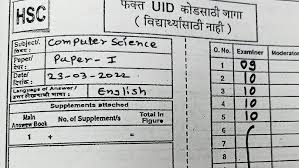 HSC
फक्त UID कोडसाठी जागा
( विद्यार्थ्यांसाठी नाही )
Subject/ विषय : Computer Science
Paper/ पेपर : Paper - I
Date/ दिनांक : 23-03-2022
Language of Answer / उत्तर लिहिण्याची भाषा : English
Supplements attached
Main Answer Book + No. of Supplement/s = Total in Figure
1 + =
Q. No. Examiner Moderator
1 09
2 10
3 10
4 10
5 10
6
7
8